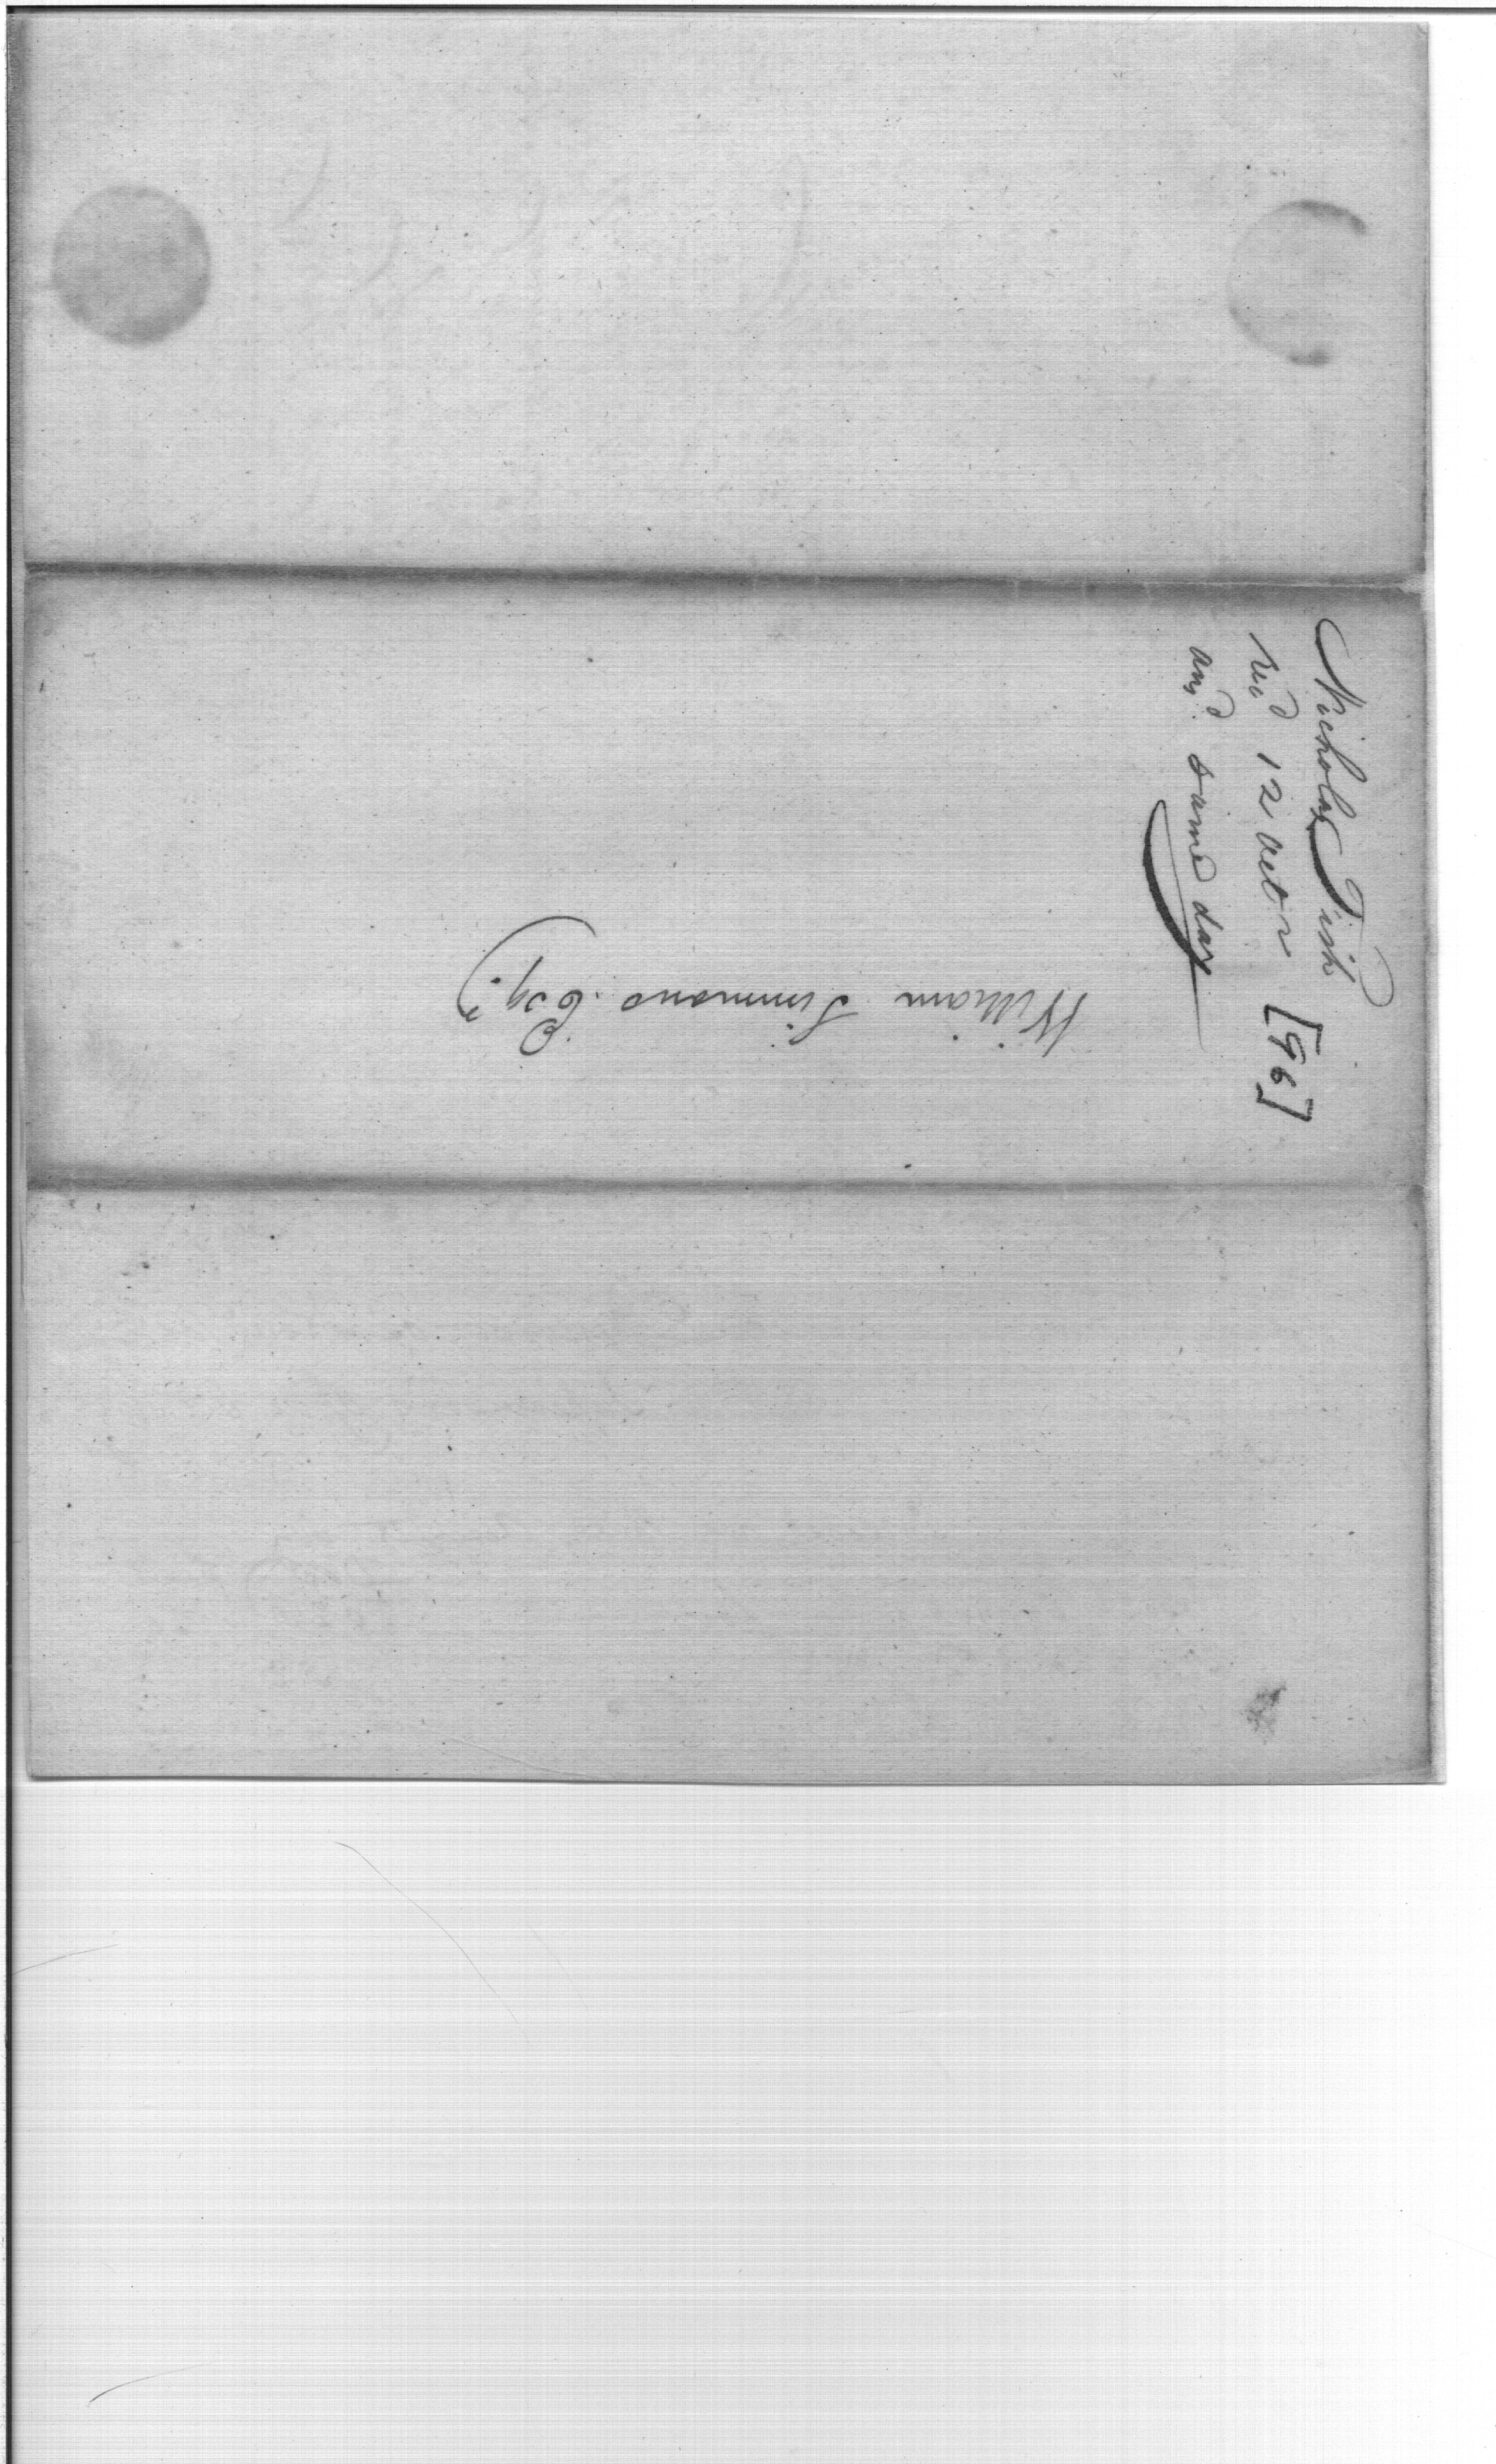 Nicholas Fish
recd 12 octor [96]
ansd. same day
William Simmons Esqr.